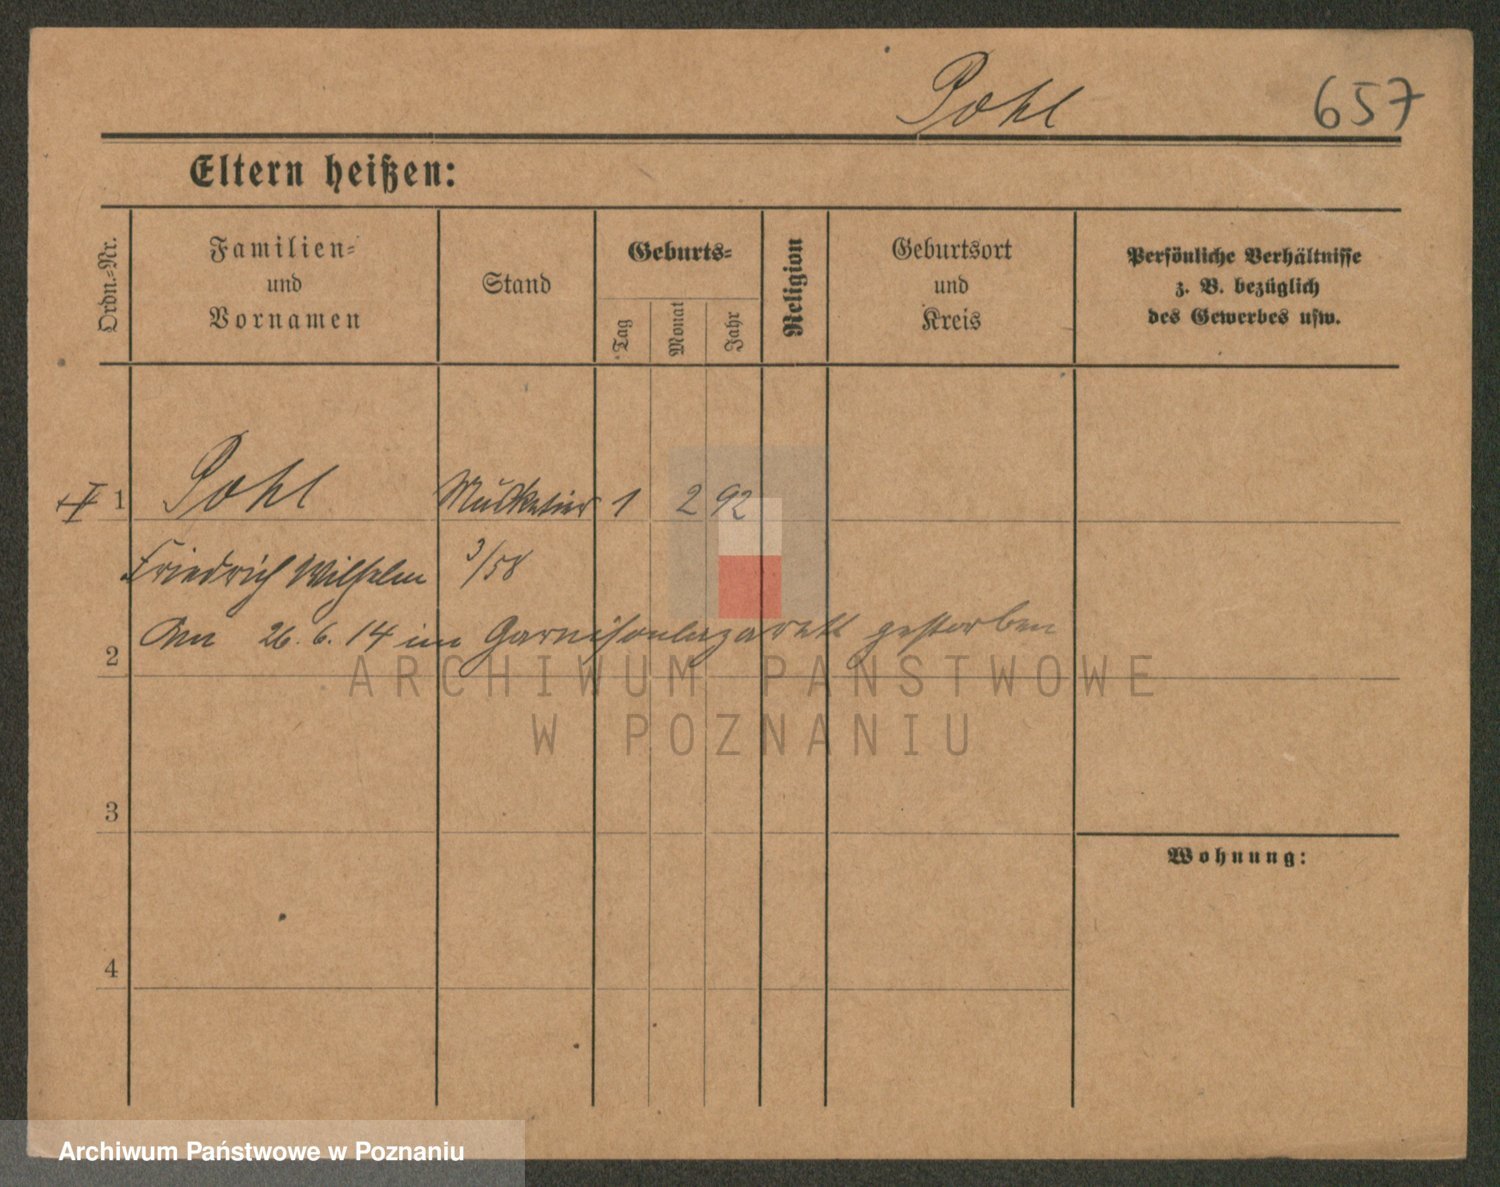 Pohl 657
Eltern heißen:
Ordn.-Nr.
Familien-
und
Vornamen
Stand
Geburts-
Tag
Monat
Jahr
Religion
Geburtsort
und
Kreis
Persönliche Verhältnisse
z. B. bezüglich
des Gewerbes usw.
1 Pohl Musketier 1 2 92
Friedrich Wilhelm 3/58
Am 26. 6. 14 im Garnisonlazarett gestorben
2
ARCHIWUM PAŃSTWOWE
W POZNANIU
3
Wohnung:
4
Archiwum Państwowe w Poznaniu